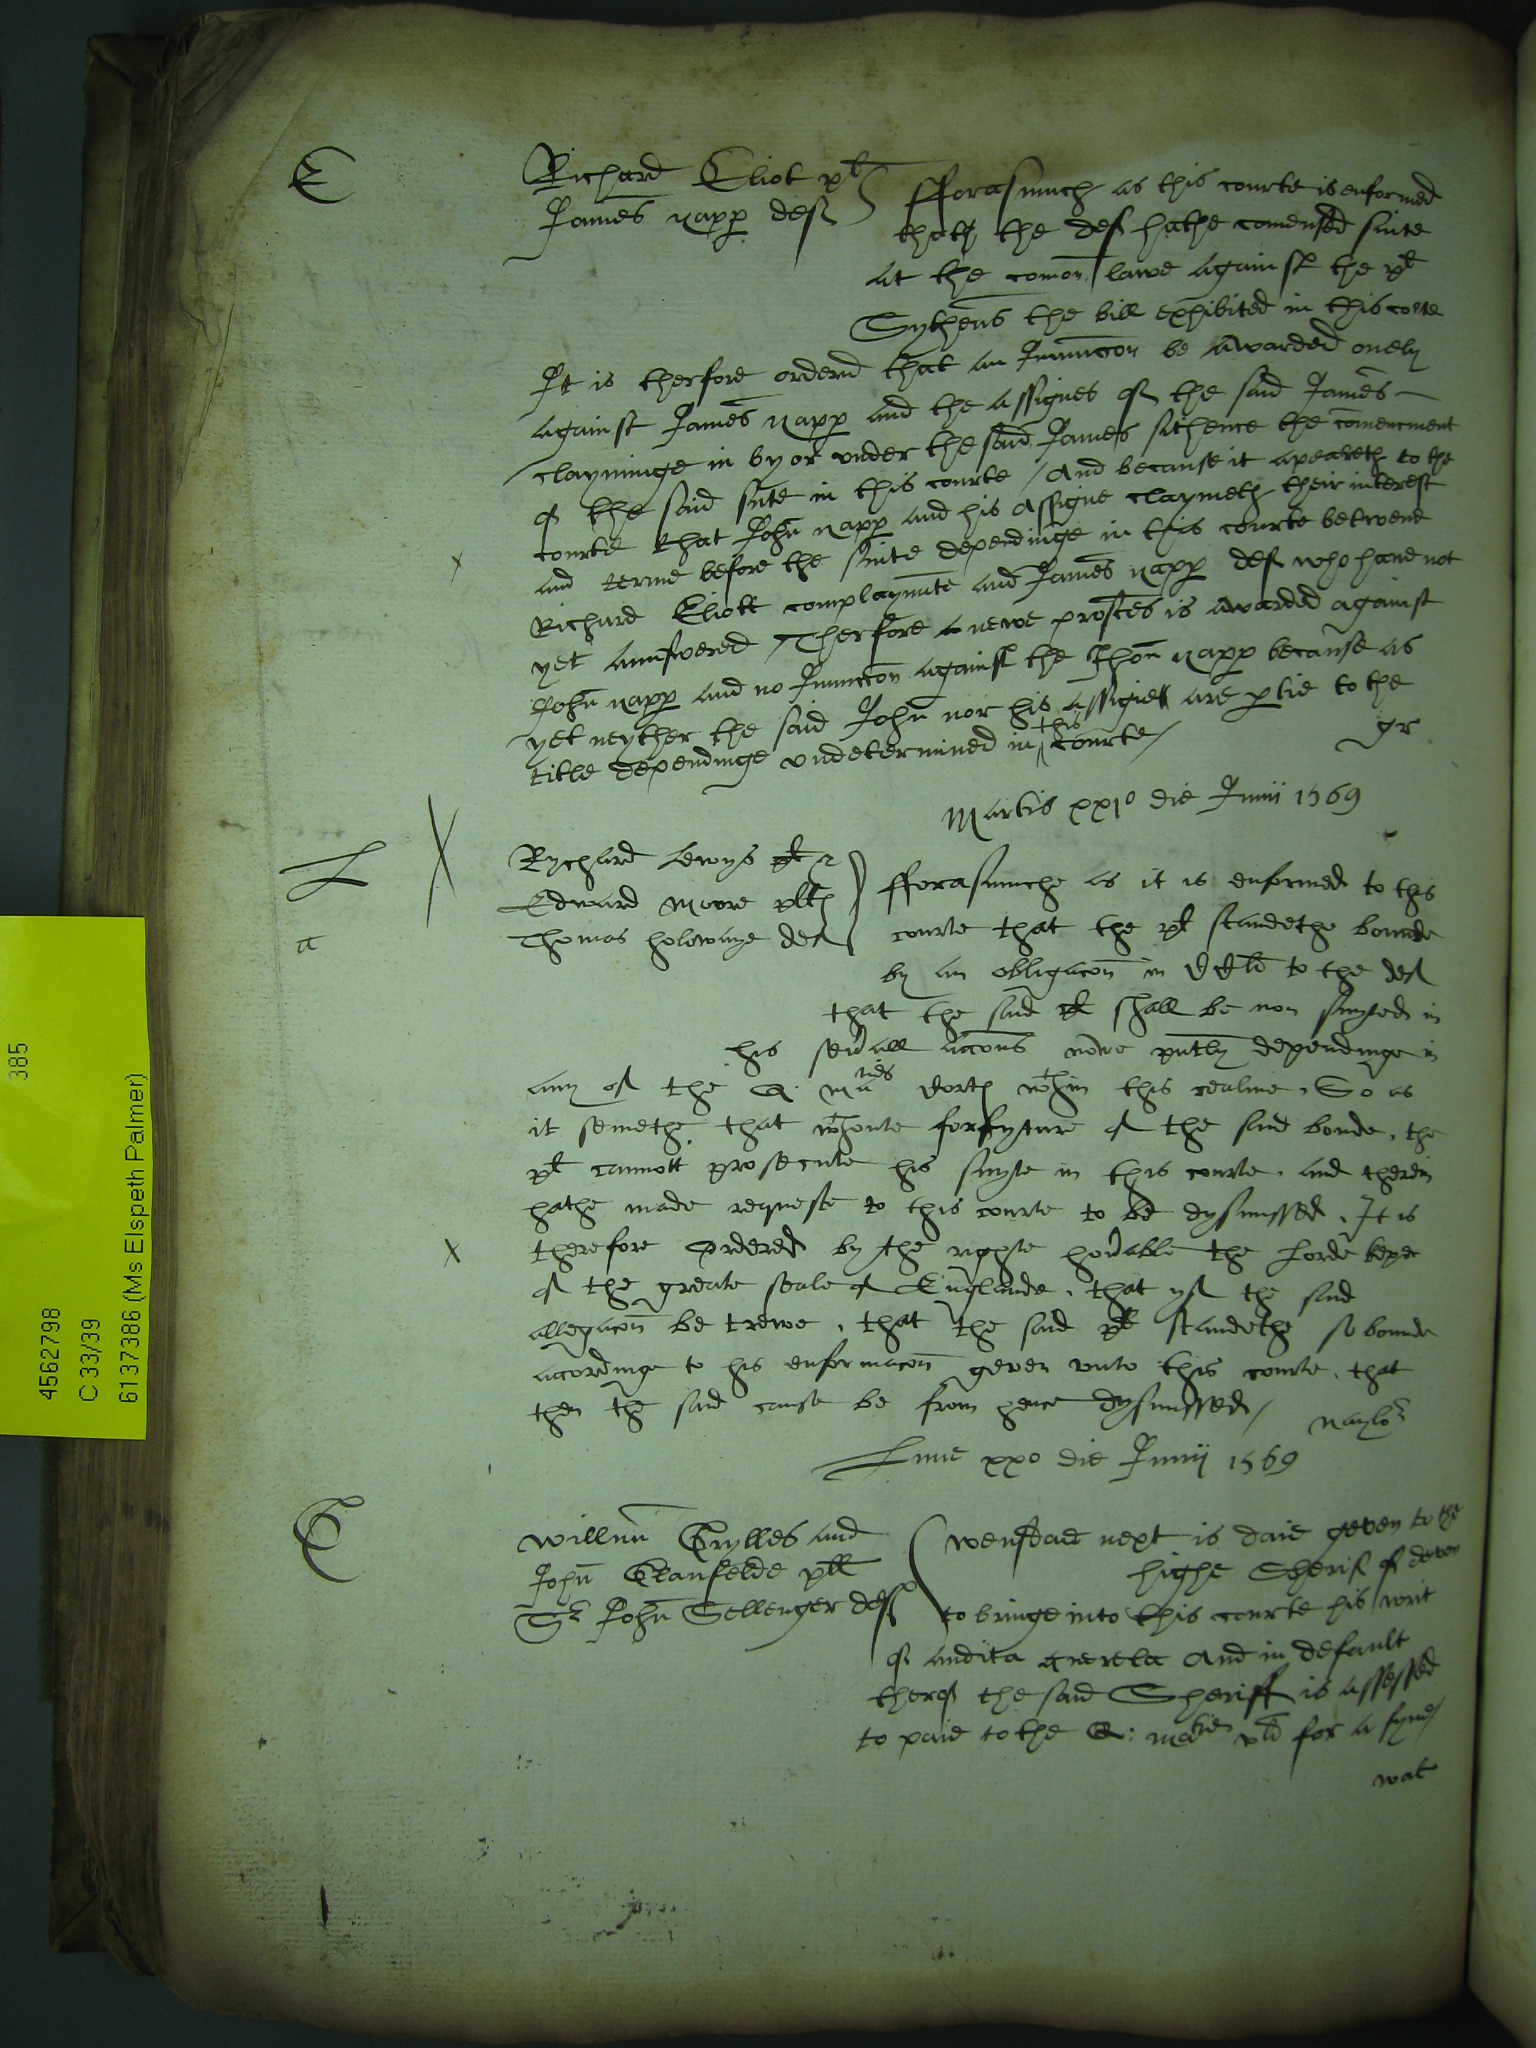 E
Richard Eliot pl
James Napp def
fforasmuch as this courte is enformed
that the def hathe comensed suite
at the comon lawe against the pl
Sythens the bill exhibited in this corte
It is therfore orderd that an Iniunccon be awarded onely
against James Napp and the assignes of the said James
clayminge in by or under the said James sithence the comencment
of the said sute in this courte / And because it apeareth to the
courte that John Napp and his assigne claymeth their interest
and terme before the suite dependinge in this courte betwene
Richard Eliott complaynnte and James Napp def who have not
yet aunswered / Therfore a newe prosces is awarded against
John Napp and no Iniuncton against the Jhon Napp because as
yet neyther the said John nor his assignes are ptie to the
title dependinge undetermined in this courte /
gr
Martis xxjo die Junii 1569
L
a
X
Rychard Lewys &
Edward Moore plts
Thomas holewaye def
fforasmuche as it is enformed to this
courte that the pl standethe bounde
by an obligacon in to the def
that the said pl shall be non suyted in
his sevall accons nowe pntly dependinge in
any of the Q. Mties Corts wthin this realme, So as
it semethe, that wthoute forfyture of the said bonde, the
pl cannott prosecute his suyte in this courte, and therein
hathe made requeste to this courte to be dysmissed, It is
therefore Ordered by the righte honable the Lorde keper
of the greate seale of Englande, that yf the said
allegacon be trewe, that the said pl standethe so bounde
accordinge to his enformacon geven unto this courte, that
then the said cause be from hence dysmissed /
Naylor
Lune xxo die Junij 1569
G
Willm Grylles and
John Glanfelde pl
Sr John Sellenger def
wensdaie next is daie geven to the
highe Sherif of devon
to bringe into this courte his writ
of audita querela And in default
therof the said Sheriff is assessed
to paie to the Q: matie vli for a fyne /
wat
385
4562798
C 33/39
6137386 (Ms Elspeth Palmer)